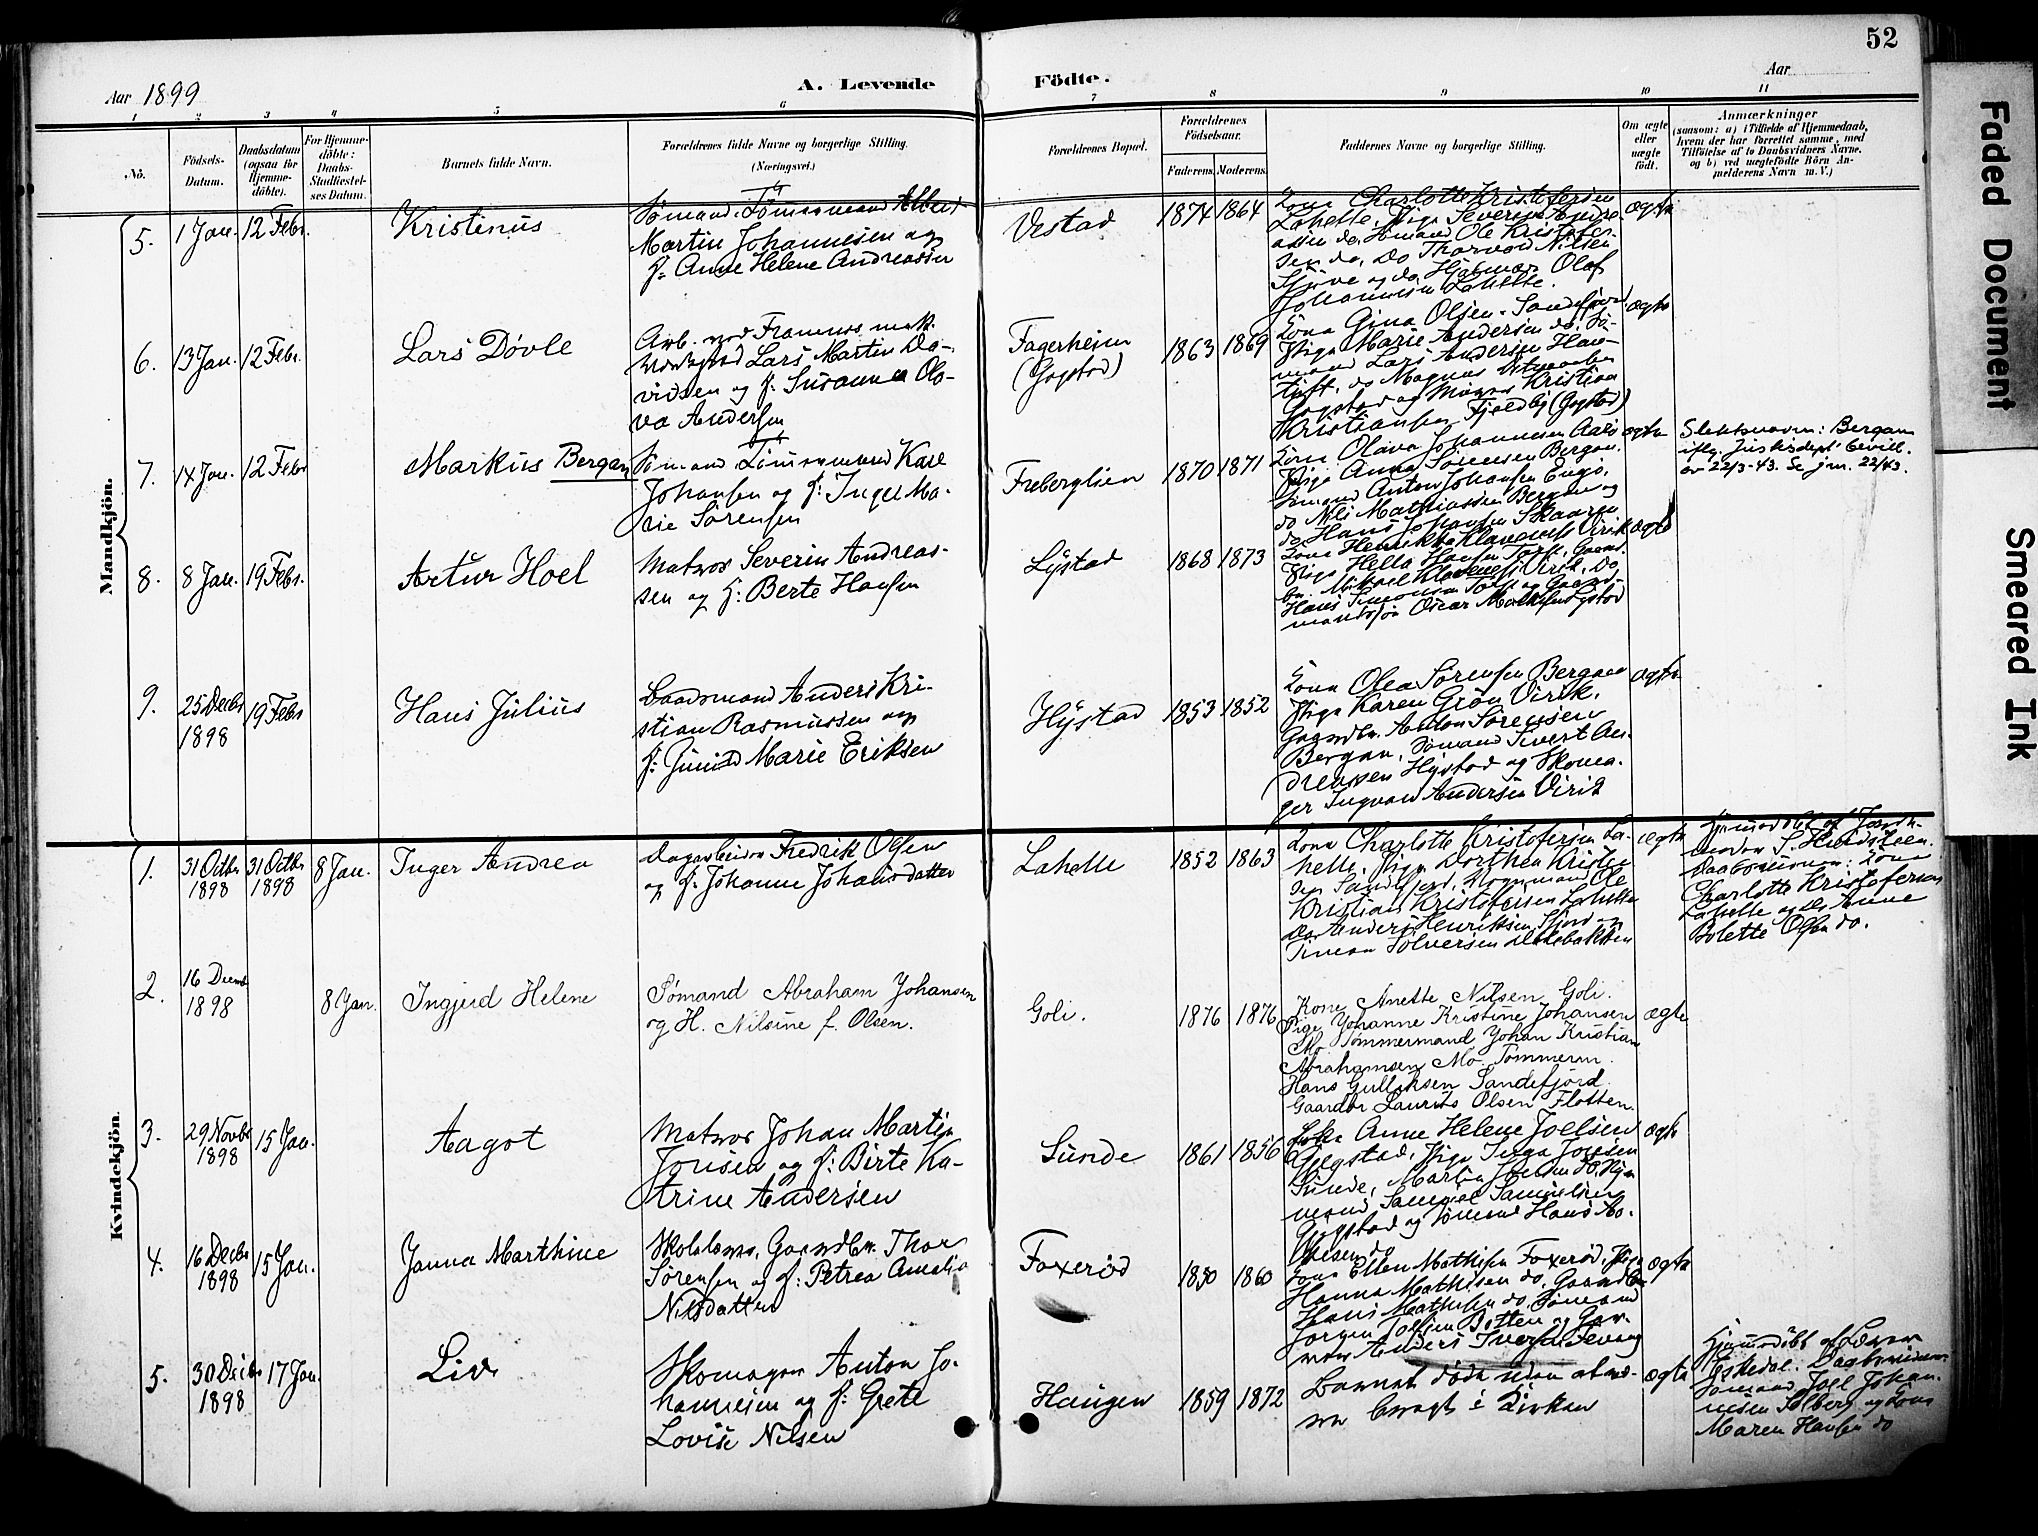 52
Aar 1899
A. Levende
Födte.
Aar
1 2 3 4 5 6 7 8 9 10 11
No.
Födsels-
Datum.
Daabsdatum
(ogsaa for
Hjemme-
döbte).
For Hjemme-
döbte:
Daabs-
Stadfæstel-
ses Datum.
Barnets fulde Navn.
Forældrenes fulde Navne og borgerlige Stilling.
(Næringsvei.)
Forældrenes Bopæl.
Forældrenes
Födselsaar.
Faderens.
Moderens.
Faddernes Navne og borgerlige Stilling.
Om ægte
eller
uægte
født.
Anmærkninger
(saasom: a) i Tilfælde af Hjemmedaab,
hvem der har forrettet samme, med
Tilföielse af to Daabsvidners Navne,
og b) ved uægtefödte Börn An-
melderens Navn m. V.)
Mandkjön.
5. 1 Jan. 12 Febr.
Kristinus
Sømand, Tømmermand
Martin Johannesen og
H: Anne Helene Andreassen
Vestad
1874 1864
Kona Charlotte Kristofersen
Lahelle, Pige Severine Andre-
assen do, Sømand Ole Kristofer-
sen do, Do Thorvald Nilsen
og do Hjalmar Olaf
Johannesen Lahelle.
ægte
6. 13 Jan. 12 Febr.
Lars Døvle
Arb. ved Framnæs mek.
Værksted Lars Martin Da-
vidsen og H: Susanna Ola-
va Andersen
Fagerheim
(Gogstad)
1863 1869
Kona Gina Olsen, Sandefjord
Pige Marie Andersen do, Sø-
mand Lars Andersen Hau-
tuft, do Magnus
Gogstad og Kristian
Kristiansen Fjeldby (Gogstad)
ægte
7. 14 Jan. 12 Febr
Markus Bergan
Sømand Tømmermand Karl
Johansen og H: Inger Ma-
rie Sørensen
Freberglien
1870 1871
Kona Olava Johannesen
Pige Anna Sørensen Bergan.
Sømand Anton Johansen Enge,
do Nils Mathiassen Bergan og
do Hans Johansen Skaaren
ægte
Slektsnavn: Bergan
iflg. Justisdept' bevill.
av 22/3-43. Se jnr. 22/43.
8. 8 Jan. 19 Febr.
Artur Hoel
Matros Severin Andreas-
sen og H: Berte Hansen
Lystad
1868 1873
Kona Henrikka Klavenes Virik
Pige Hella Hansen
br. Mikael Klavenes Virik, Do
Hans Simonsen og Gaard-
mandssøn Oscar Lystad
ægte
9. 25 Decbr
1898
19 Febr
Hans Julius
Baadsmand Anders Kri-
stian Rasmussen og
H: Marie Eriksen
Hystad
1853 1852
Kona Olea Sørensen Bergan
Pige Karen Grøn Virik,
Gaardbr. Anton Sørensen
Bergan, Sømand Sivert An-
dreassen Hystad og Skoma-
ger Ingvar Andersen Virik
ægte
Kvindekjön.
1. 31 Octbr
1898
31 Octbr
1898
8 Jan.
Inger Andrea
Dagarbeider Fredrik Olsen
og H: Johanne Johansdatter
Lahelle
1852 1863
Kona Charlotte Kristofersen La-
helle, Pige Dorthea Kristen
sen Sandefjord, Ole
Kristian Kristofersen Lahelle
Do Anders Henriksen og
Simon Sølversen
ægte
Hjemmedøbt af Jord-
moder S. Hundsteen.
Daabsvidner: Kona
Charlotte Kristofersen
Lahelle og Do Anne
Bolette Olsen do.
2. 16 Decemb
1898
8 Jan.
Ingjerd Helene
Sømand Abraham Johansen
og H. Nilsine f. Olsen.
Goli.
1876 1876
Kone Anette Nilsen Goli.
Pige Johanne Kristine Johansen
Mo Tømmermand Johan Kristian
Abrahamsen Mo. Tømmerm.
Hans Gullaksen Sandefjord.
Gaardbr Laurits Olsen Flotten.
ægte
3. 29 Novbr
1898
15 Jan.
Aagot
Matros Johan Martin
Jonsen og H: Birte Ka-
trine Andersen
Sunde
1861 1856
Anne Helene Joelsen
Gogstad, Pige Inga Jonsen
Sunde, Martin
mand Samuel Samuelsen
Gogstad og Sømand Hans
ægte
4. 16 Decbr
1898
15 Jan.
Janna Marthine
Skolelærer, Gaardbr. Thor
Sørensen og H: Petrea Amalia
Nilsdatter
Foxerød
1850 1860
Kona Ellen Mathisen Foxerød, Pige
Hanna Mathisen do, Gaardbr
Hans Mathisen do, Sømand
Jørgen Botten og Gar-
ver Anders Iversen
ægte
5. 30 Decbr
1898
17 Jan.
Liv
Skomager Anton Jo-
hannesen og H: Grete
Lovise Nilsen
Haugen
1859 1872
Barnet døde uden at væ-
re bragt i Kirken
ægte
Hjemmedøbt af Lærer
Daabsvidner:
Sømand Joel Johan-
nesen Solberg og Kona
Maren Hansen do
Faded Document
Smeared Ink